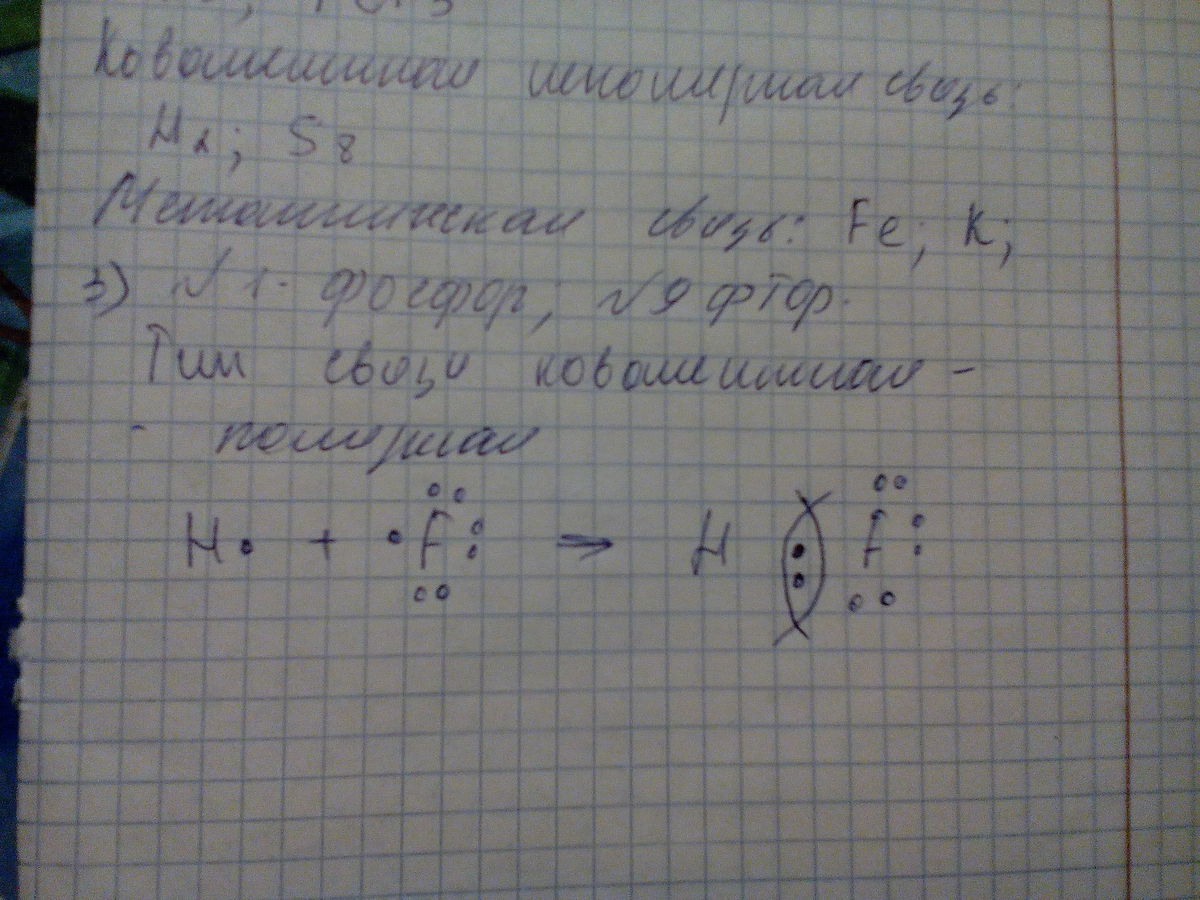 Ковалентная неполярная связь:
H₂; S₈
Металлическая связь: Fe; K;
3) №1- фосфор; №9 фтор.
Тип связи ковалентная -
- полярная
H• + •F: → H : F: